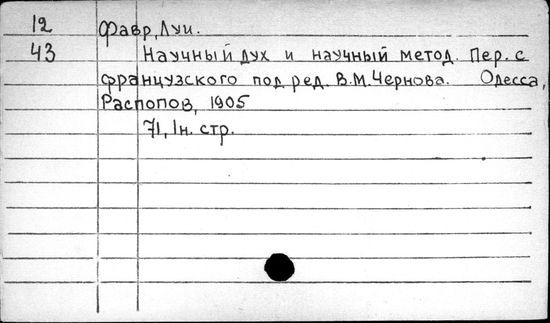 12 Фавр, Луи.
43 Научный дух и научный метод. Пер. с
французского под ред. В.М.Чернова. Одесса,
Распопов, 1905
71, 1н. стр.